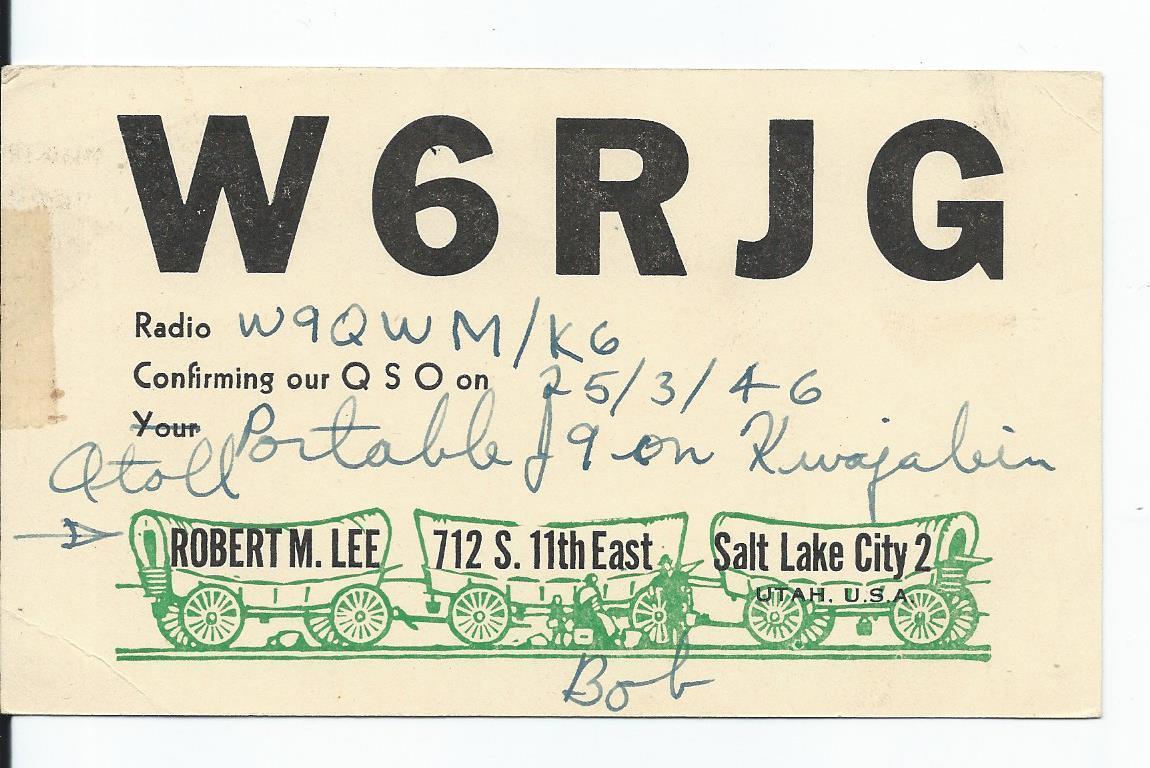 W6RJG
Radio W9QWM/K6
Confirming our Q S O on 25/3/46
Your Portable J9 on Kwajalein
Atoll
ROBERT M. LEE 712 S. 11th East Salt Lake City 2
UTAH. U.S.A.
Bob